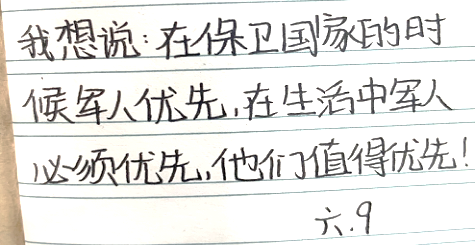 我想说:在保卫国家的时
候军人优先,在生活中军人
必须优先,他们值得优先!
六.9